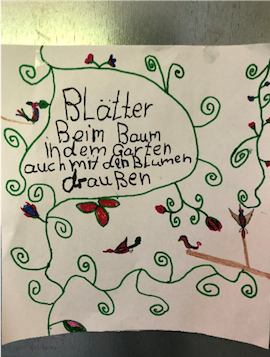 BLätter
Beim Baum
In dem Garten
auch mit den Blumen
draußen